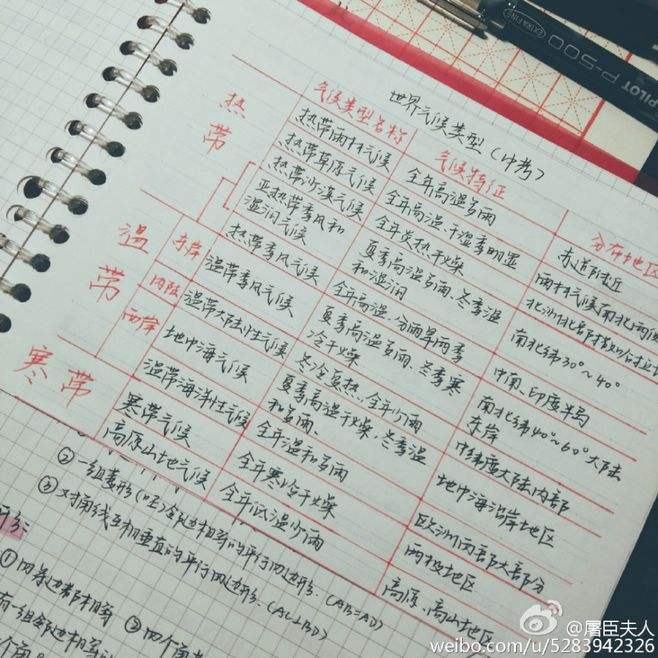 世界气候类型(中考)
气候类型名称 气候特征 分布地区
热带
热带雨林气候 全年高温多雨 赤道附近
热带草原气候 全年高温、干湿季明显 雨林气候南北两侧
热带沙漠气候 全年炎热干燥
亚热带季风和 夏季高温多雨、冬季温 南北纬30°~40°
湿润气候 和湿润
热带季风气候 全年高温、分雨旱两季 中南、印度半岛
温带
东岸 温带季风气候 夏季高温多雨、冬季寒 南北纬40°~60°大陆
冷干燥 东岸
内陆 温带大陆性气候 冬冷夏热、全年少雨 中纬度大陆内部
西岸 地中海气候 夏季高温干燥、冬季温 地中海沿岸地区
和多雨、
温带海洋性气候 全年温和多雨 欧洲西部大部分
寒带
寒带气候 全年寒冷干燥 两极地区
高原山地气候 全年低温少雨 高原、高山地区
②一组菱形(旺)邻边相等的平行四边形.(AB=AD)
③对角线互相垂直的平行四边形.(AC⊥BD)
①四条边都相等 ②四个角
有一组邻边相等
PILOT P-500
EXTRA FINE
@屠臣夫人
weibo.com/u/5283942326